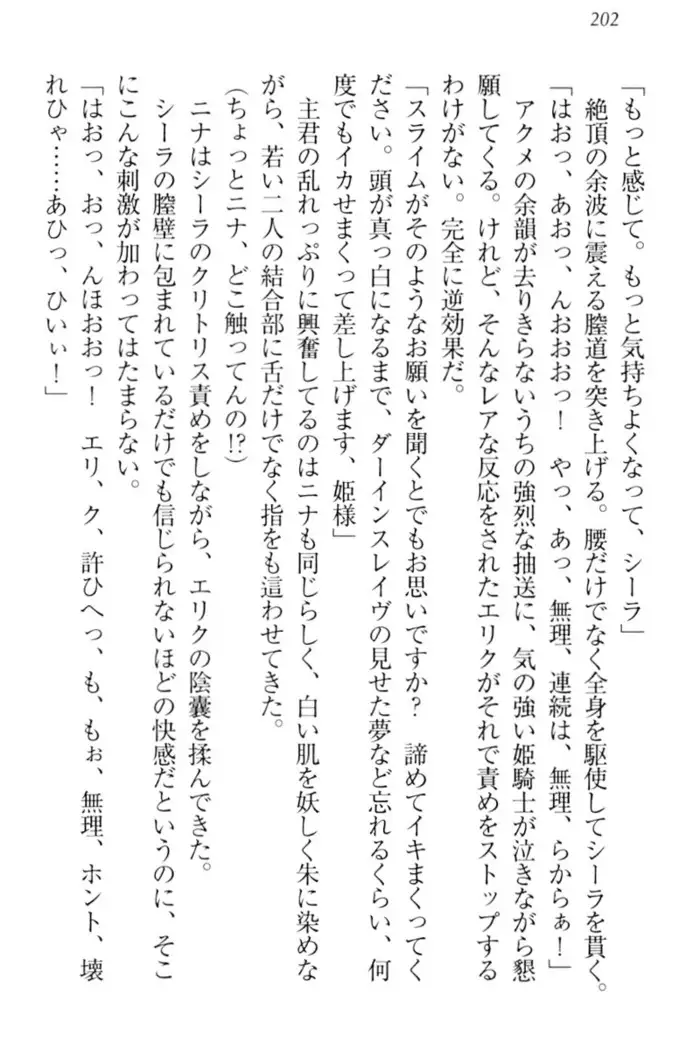 202
「もっと感じて。もっと気持ちよくなって、シーラ」
　絶頂の余波に震える膣道を突き上げる。腰だけでなく全身を駆使してシーラを貫く。
「はおっ、あおっ、んおおおっ！　やっ、あっ、無理、連続は、無理、らからぁ！」
　アクメの余韻が去りきらないうちの強烈な抽送に、気の強い姫騎士が泣きながら懇
願してくる。けれど、そんなレアな反応をされたエリクがそれで責めをストップする
わけがない。完全に逆効果だ。
「スライムがそのようなお願いを聞くとでもお思いですか？　諦めてイキまくってく
ださい。頭が真っ白になるまで、ダーインスレイヴの見せた夢など忘れるくらい、何
度でもイカせまくって差し上げます、姫様」
　主君の乱れっぷりに興奮してるのはニナも同じらしく、白い肌を妖しく朱に染めな
がら、若い二人の結合部に舌だけでなく指をも這わせてきた。
(ちょっとニナ、どこ触ってんの!?)
　ニナはシーラのクリトリス責めをしながら、エリクの陰嚢を揉んできた。
　シーラの膣壁に包まれているだけでも信じられないほどの快感だというのに、そこ
にこんな刺激が加わってはたまらない。
「はおっ、おっ、んほおおっ！　エリ、ク、許ひへっ、も、もぉ、無理、ホント、壊
れひゃ……あひっ、ひいぃ！」